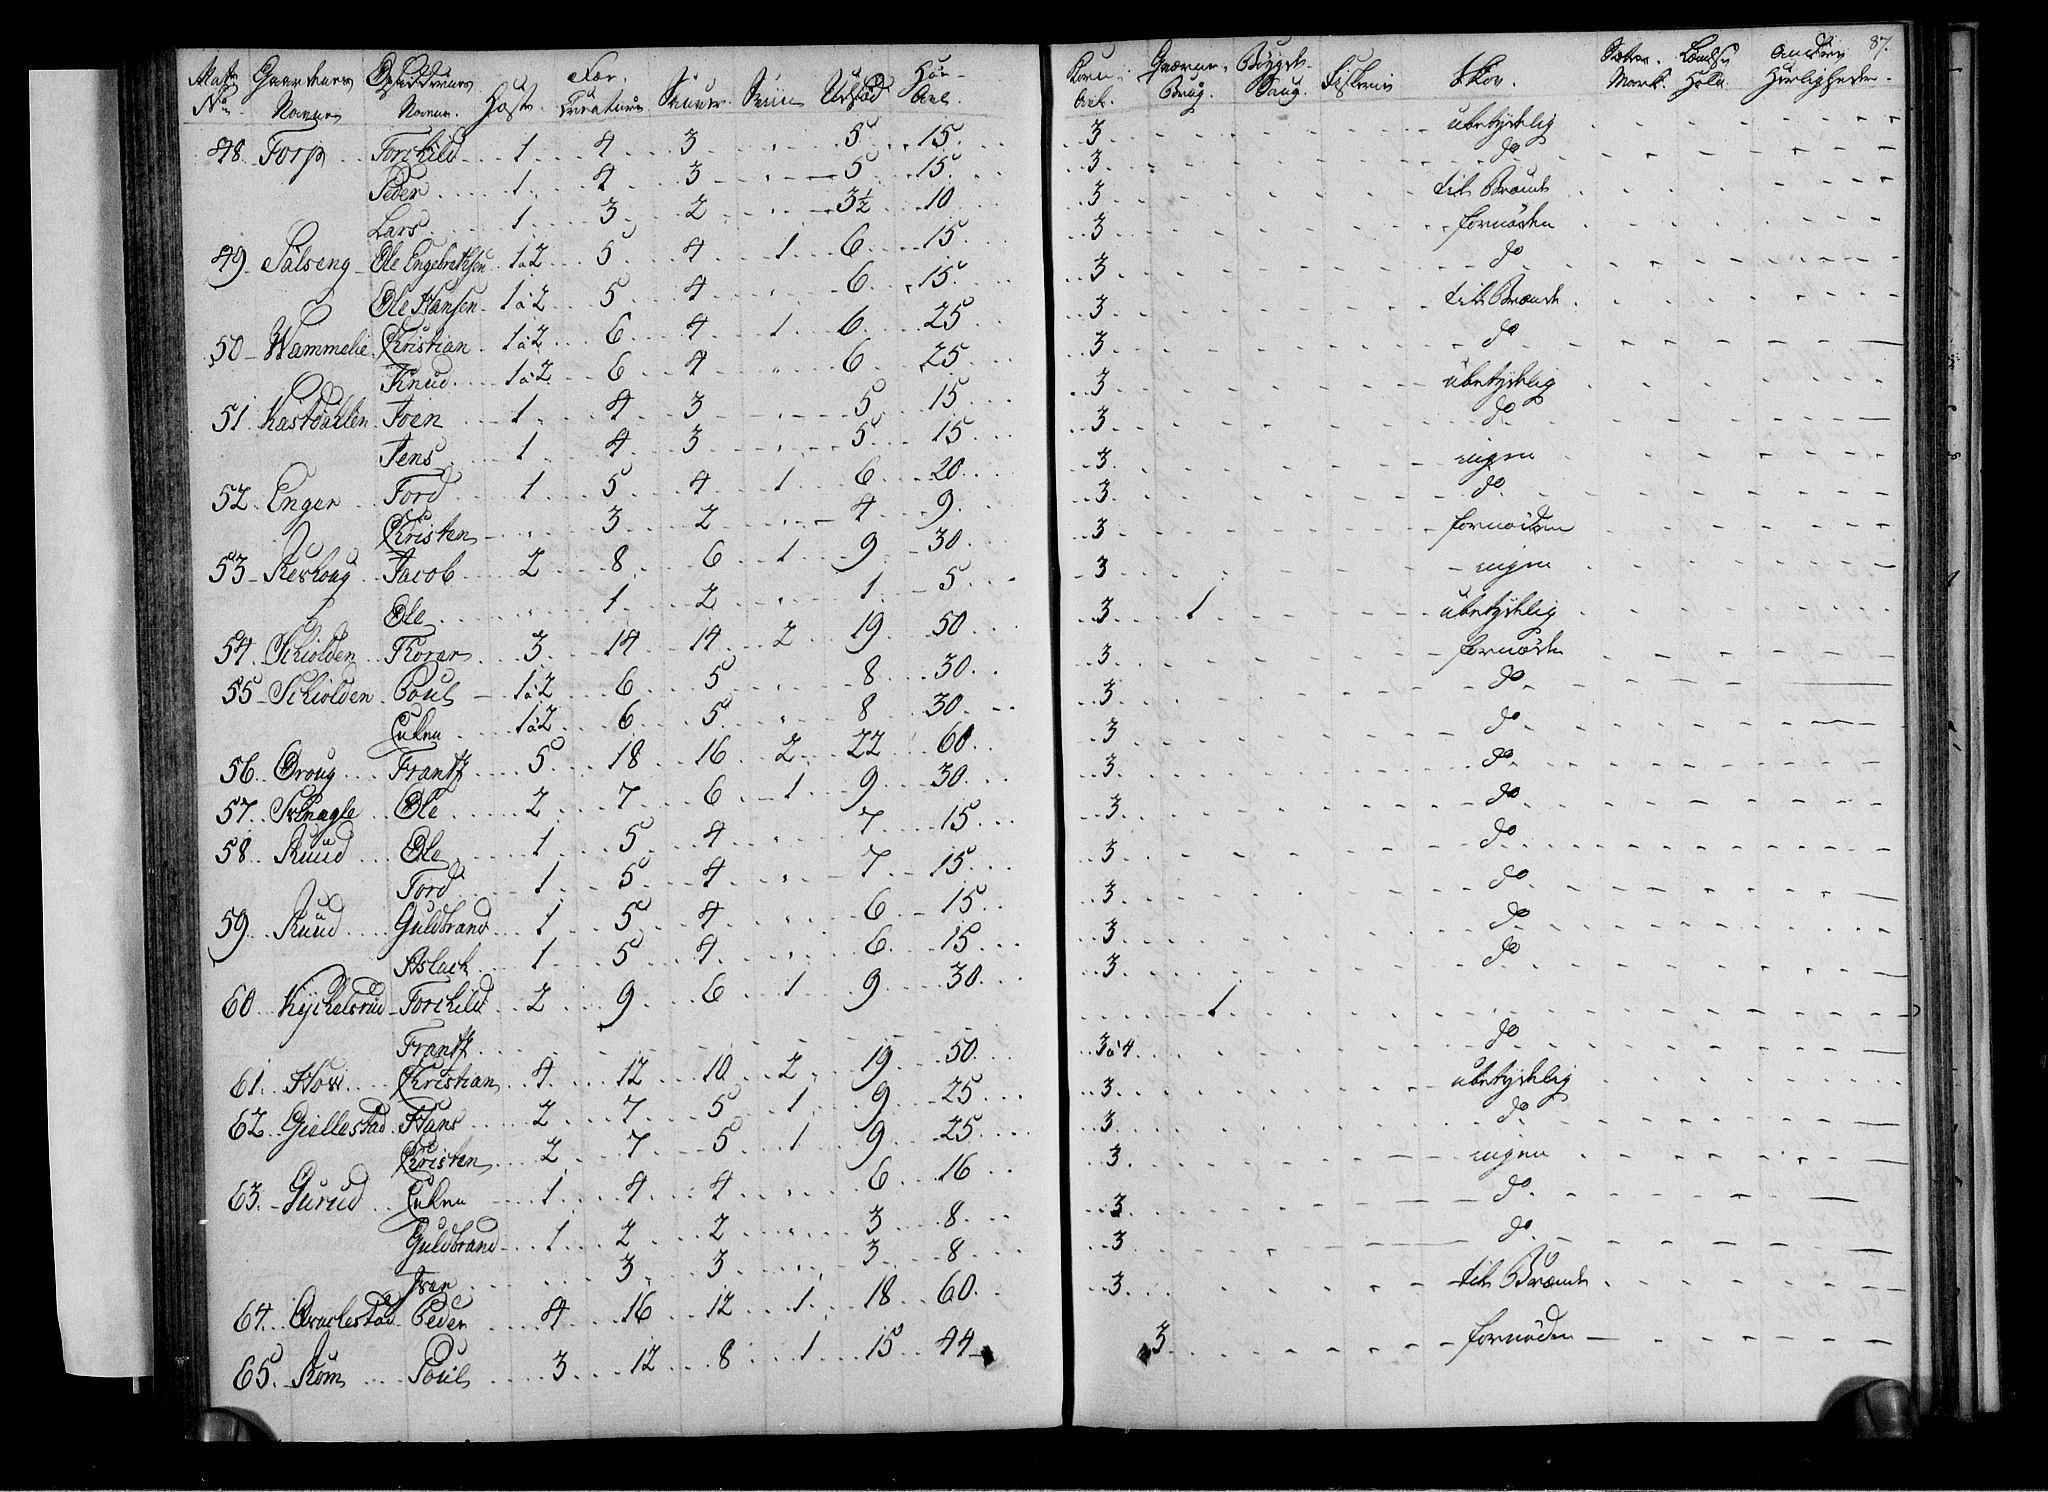 87.
Matr No. Gaardenes Navne Opsiddernes Navne. Heste. Fær. Creature Sauer. Sviin Udsæd Høe-Avl. Korn-Avl. Qværne-Brug. Bøygde-Saug. Fiskerie Skov. Sæter-Mark. Andre Herligheder.
48. Torp Torchild 1 4 3 5 15. 3 ubetydelig
Peder 1 4 3 5 15. 3 do
Lars 1 3 2 3½ 10 3 til Brænde
49 Ole Engebrethsen 1 a 2 5 4 1 6 15 3 fornøden
Ole Hansen 1 a 2 5 4 6 15 3 do
50 Wammelie Christian 1 a 2 6 4 1 6 25 3 til Brænde
Knud 1 a 2 6 4 6 25 3 do
51 Kastdahlen Joen 1 4 3 5 15 3 ubetydelig
Jens 1 4 3 5 15 3 do
52 Enger Tord 1 5 4 1 6 20 3 ingen
Christen 3 2 4 9 3 do
53 Jacob 2 8 6 1 9 30 3 fornøden
Ole 1 2 1 5 3 ingen
54 Schiolden Thorer 3 14 14 2 19 50 3 1 ubetydelig
55 Schiolden Poul 1 a 2 6 5 8 30 3 fornøden
1 a 2 6 5 8 30 3 do
56 Frantz 5 18 16 2 22 60 3 do
57 Ole 2 7 6 1 9 30 3 do
58 Ruud Ole 1 5 4 7 15 3 do
Tord 1 5 4 7 15 3 do
59 Ruud Guldbrand 1 5 4 6 15 3 do
Aslach 1 5 4 6 15 3 do
60 Kychelsrud Torchild 2 9 6 1 9 30 3 do
Frantz 1
61 Hov Christian 4 12 10 2 19 50 3 a 4 do
62 Giellestad Hans 2 7 5 1 9 25 3 ubetydelig
Christen 2 7 5 1 9 25 3 do
63 1 4 4 6 16 3 ingen
Guldbrand 1 2 2 3 8 3 do
Iver 3 3 3 8 3 do
64 Peder 4 16 12 1 18 60 3 til Brænde
65 Rom Poul 3 12 8 1 15 44 3 fornøden